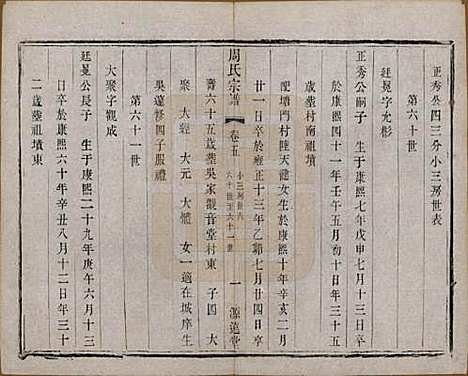 正秀公四三分小三房世表
第六十世
廷冕字允彩
正秀公嗣子 生于康熙七年戊申七月十三日卒
於康熙四十一年壬午五月初十日年三十五
歲葬村南祖墳
配塘門村陸天龍女生於康熙十年辛亥二月
廿一日卒於雍正十三年乙卯七月廿四日享
周氏宗譜
卷五
小三房世六
六十世至六十一世
一
源遠堂
壽六十五歲葬吳家觀音堂村東 子四 大
聚 大經 大元 大體 女一適在城庠生
吳蓮 四子服禮
第六十一世
大聚字觀成
廷冕公長子 生于康熙二十九年庚午六月十三
日卒於康熙六十年辛丑八月十二日年三十
二歲葬祖墳東